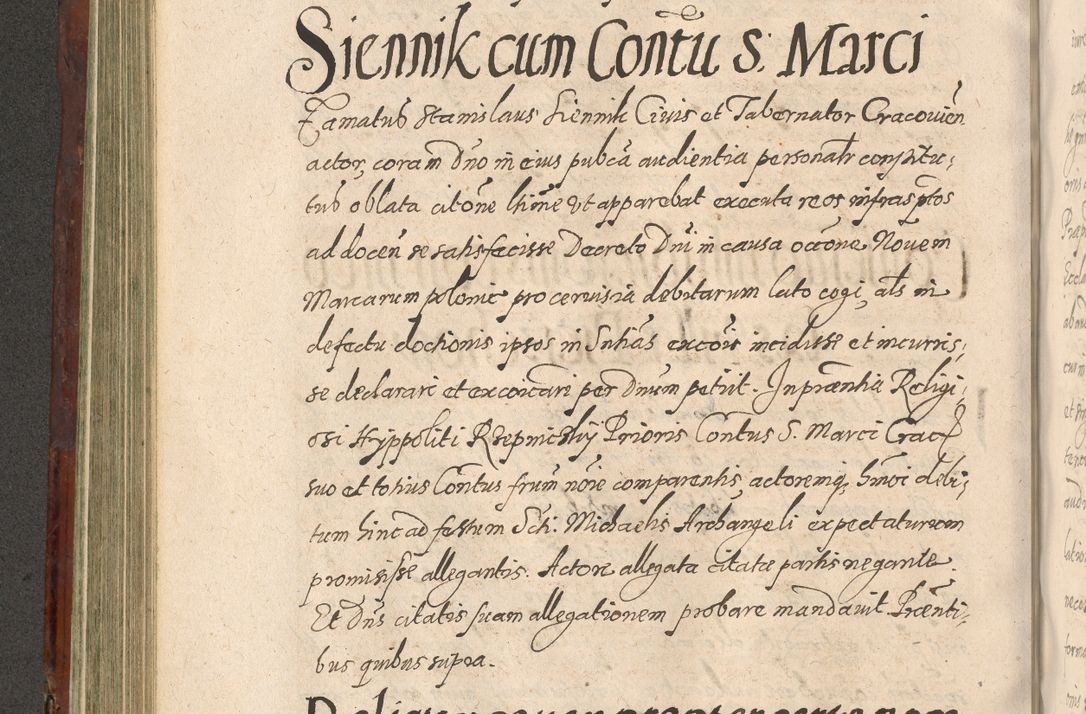 Siennik cum Contu S: Marci
Famatus Stanislaus Siennik Civis et Tabernator Cracovien
actor, coram Dno in eius pubca audientia personalr constitu,
tus oblata citone hinc ut apparebat executa reos infrasptos
ad docen se satisfecisse Decreto Dni in causa occone Novem
Marcarum polonic pro cervisia debitarum lato cogi, als in
defectu doctionis ipsos in Sntias excois incidisse et incurris,
se declarari et excoicari per Dnum petiit. In prntia Religi,
osi Hyppoliti Rzepnickij Prioris Contus S. Marci Crac
suo et totius Contus frum noie comparentis, actoremq, hmoi debi,
tum hinc ad festum Scti: Michaelis Archangeli expectaturum
promisisse allegantis. Actore allegata citatae partis negante.
Et Dns citatis suam allegationem probare mandavit Prnti,
bus quibus supra.